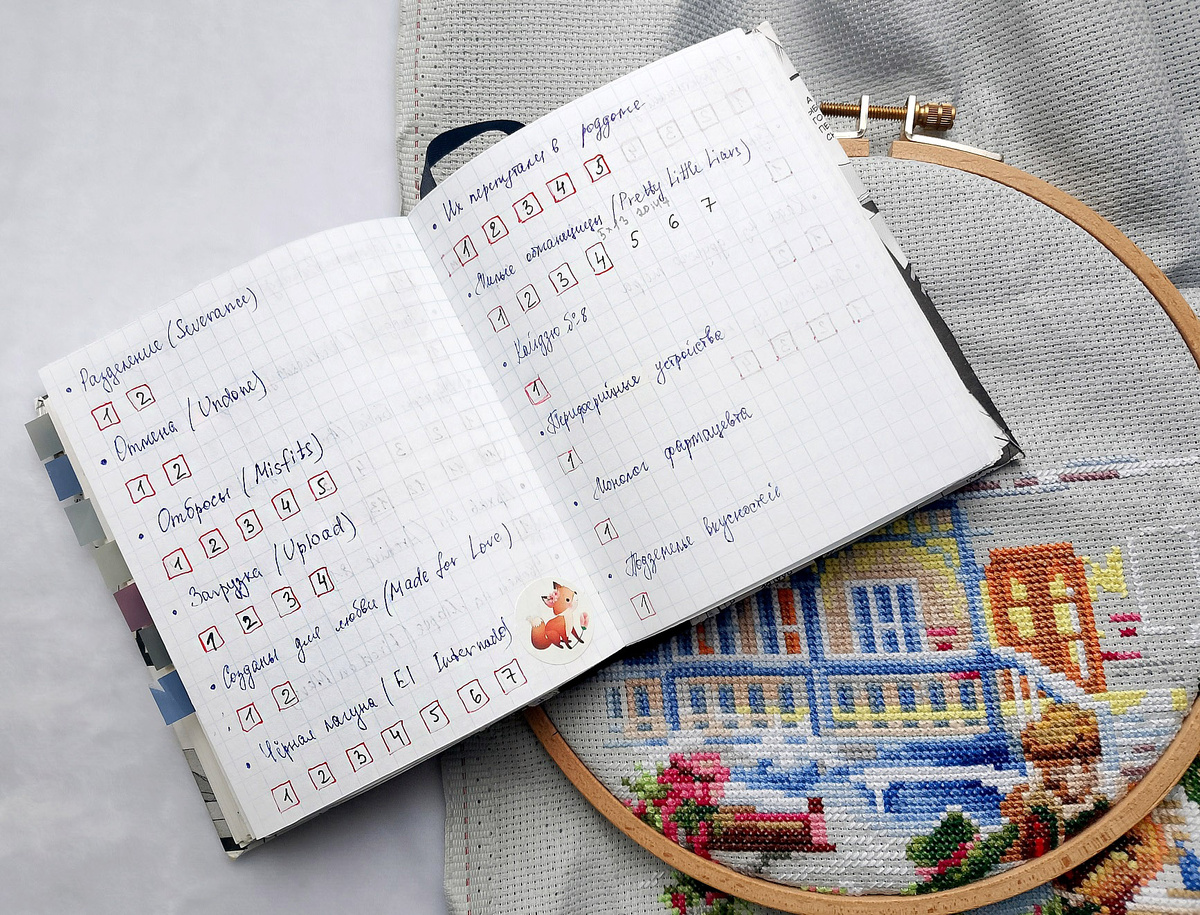 • Разделение (Severance)
1 2
• Отмена (Undone)
1 2
• Отбросы (Misfits)
1 2 3 4 5
• Загрузка (Upload)
1 2 3 4
• Созданы для любви (Made for Love)
1 2
• Чёрная лагуна (El Internado)
1 2 3 4 5 6 7
• Их перепутали в роддоме
1 2 3 4 5
• Милые обманщицы (Pretty Little Liars)
1 2 3 4 5 6 7
• Кайдзю № 8
1
• Периферийные устройства
1
• Монолог фармацевта
1
• Подземелье вкусностей
1